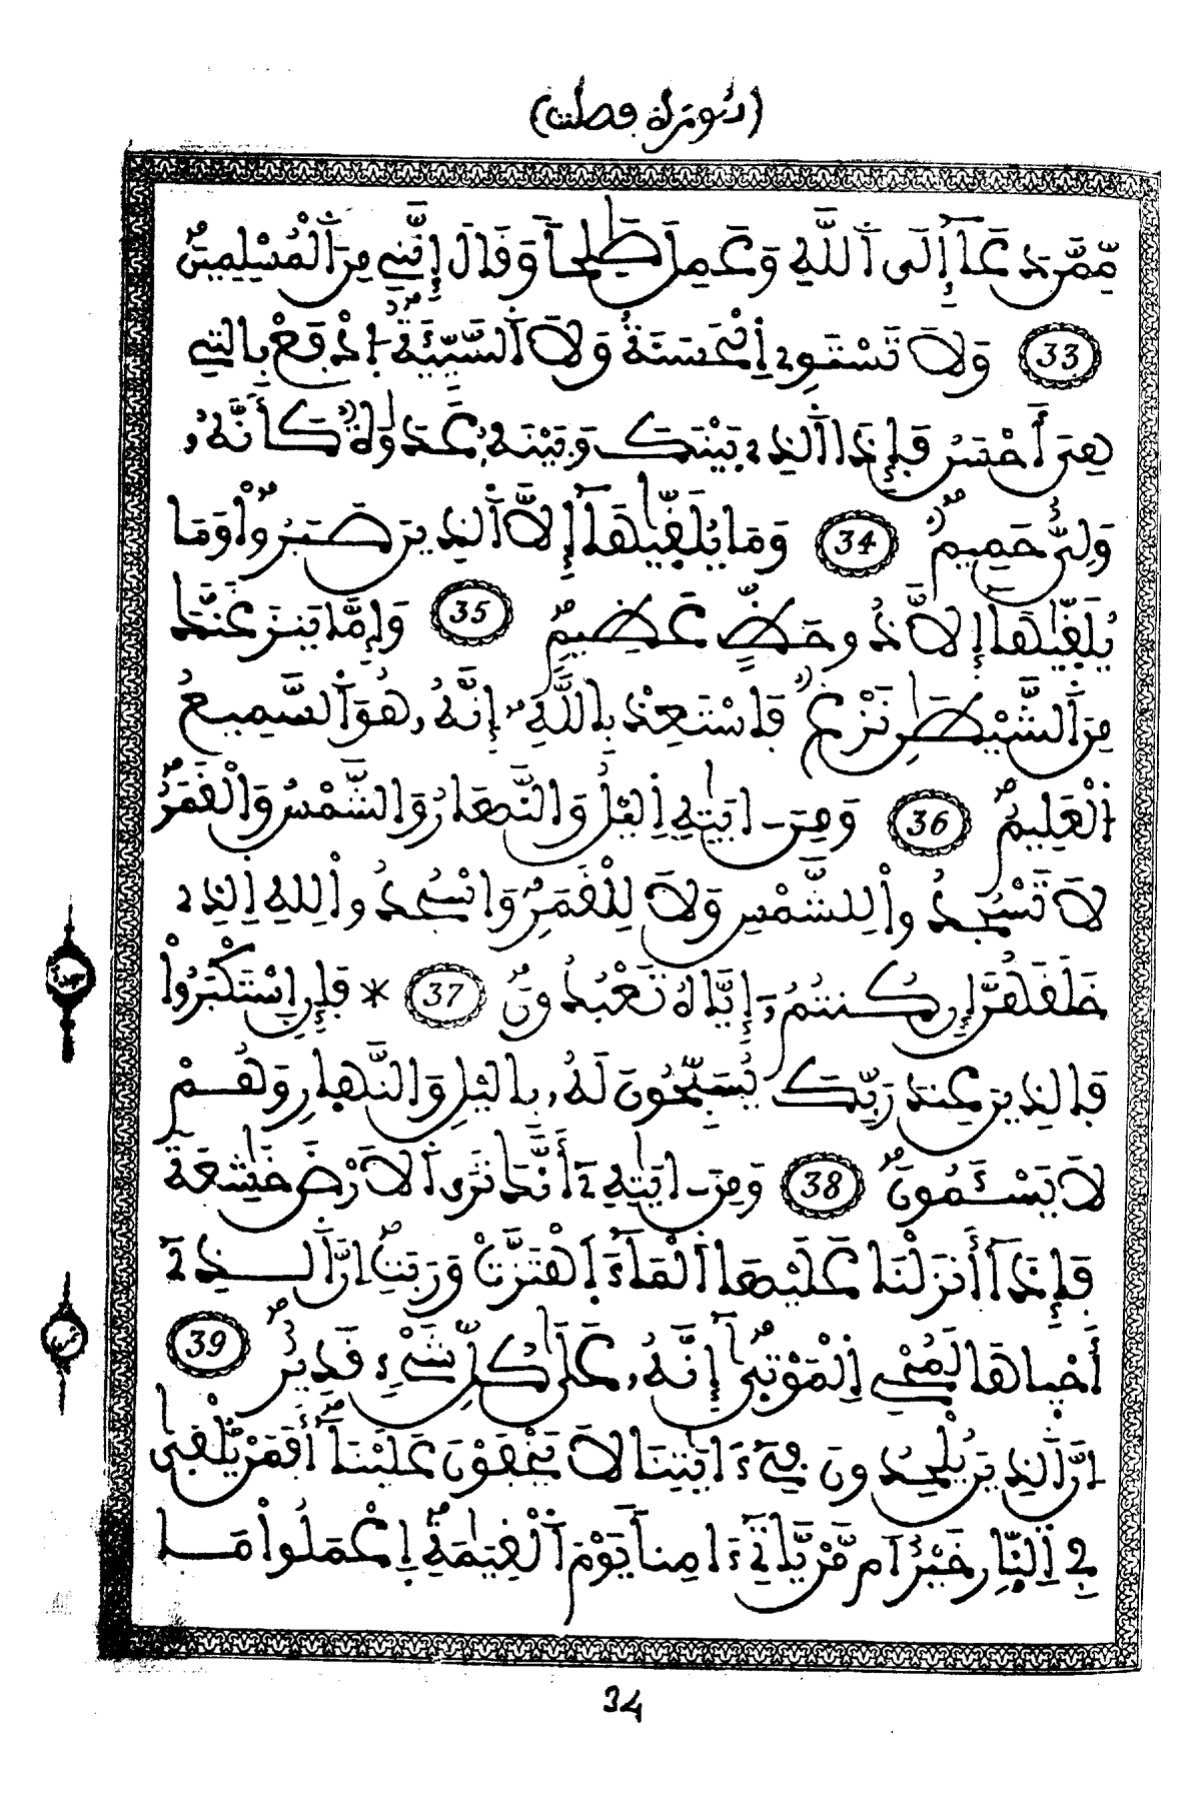 (سورة فصلت)
مِّمَّن دَعَآ إِلَى اَ۬للَّهِ وَعَمِلَ صَٰلِحاٗ وَقَالَ إِنَّنِے مِنَ اَ۬لْمُسْلِمِينَۖ
33 وَلَا تَسْتَوِے اِ۬لْحَسَنَةُ وَلَا اَ۬لسَّيِّئَةُۖ اُ۪دْفَعْ بِالتِے
هِيَ أَحْسَنُ فَإِذَا اَ۬لذِے بَيْنَكَ وَبَيْنَهُۥ عَدَٰوَةٞ كَأَنَّهُۥ
وَلِيٌّ حَمِيمٞۖ 34 وَمَا يُلَقّ۪يٰهَآ إِلَّا اَ۬لذِينَ صَبَرُواْ وَمَا
يُلَقّ۪يٰهَآ إِلَّا ذُو حَظٍّ عَظِيمٖۖ 35 وَإِمَّا يَنزَغَنَّكَ
مِنَ اَ۬لشَّيْطَٰنِ نَزْغٞ فَاسْتَعِذْ بِاللَّهِۖ إِنَّهُۥ هُوَ اَ۬لسَّمِيعُ
اُ۬لْعَلِيمُۖ 36 وَمِنَ اٰيَٰتِهِ اِ۬ليْلُ وَالنَّهَارُ وَالشَّمْسُ وَالْقَمَرُۖ
لَا تَسْجُدُواْ لِلشَّمْسِ وَلَا لِلْقَمَرِۖ وَاسْجُدُواْ لِلهِ اِ۬لذِے
خَلَقَهُنَّ إِن كُنتُمُۥٓ إِيَّاهُ تَعْبُدُونَۖ 37 * فَإِنِ اِ۪سْتَكْبَرُواْ
فَالذِينَ عِندَ رَبِّكَ يُسَبِّحُونَ لَهُۥ بِاليْلِ وَالنَّهَارِ وَهُمْ
لَا يَسْـَٔمُونَۖ 38 وَمِنَ اٰيَٰتِهِۦٓ أَنَّكَ تَرَى اَ۬لَارْضَ خَٰشِعَةٗ
فَإِذَآ أَنزَلْنَا عَلَيْهَا اَ۬لْمَآءَ اَ۪هْتَزَّتْ وَرَبَتِۖ اِنَّ اَ۬لذِےٓ
أَحْيَاهَا لَمُحْيِ اِ۬لْمَوْت۪يٰٓۖ إِنَّهُۥ عَلَىٰ كُلِّ شَےْءٖ قَدِيرٌۖ 39
اِنَّ اَ۬لذِينَ يُلْحِدُونَ فِےٓ ءَايَٰتِنَا لَا يَخْفَوْنَ عَلَيْنَآۖ أَفَمَنْ يُّلْق۪يٰ
فِے اِ۬لنّ۪ارِ خَيْرٌ اَم مَّنْ يَّاتِےٓ ءَامِناٗ يَوْمَ اَ۬لْقِيَٰمَةِۖ اِ۪عْمَلُواْ مَا
34